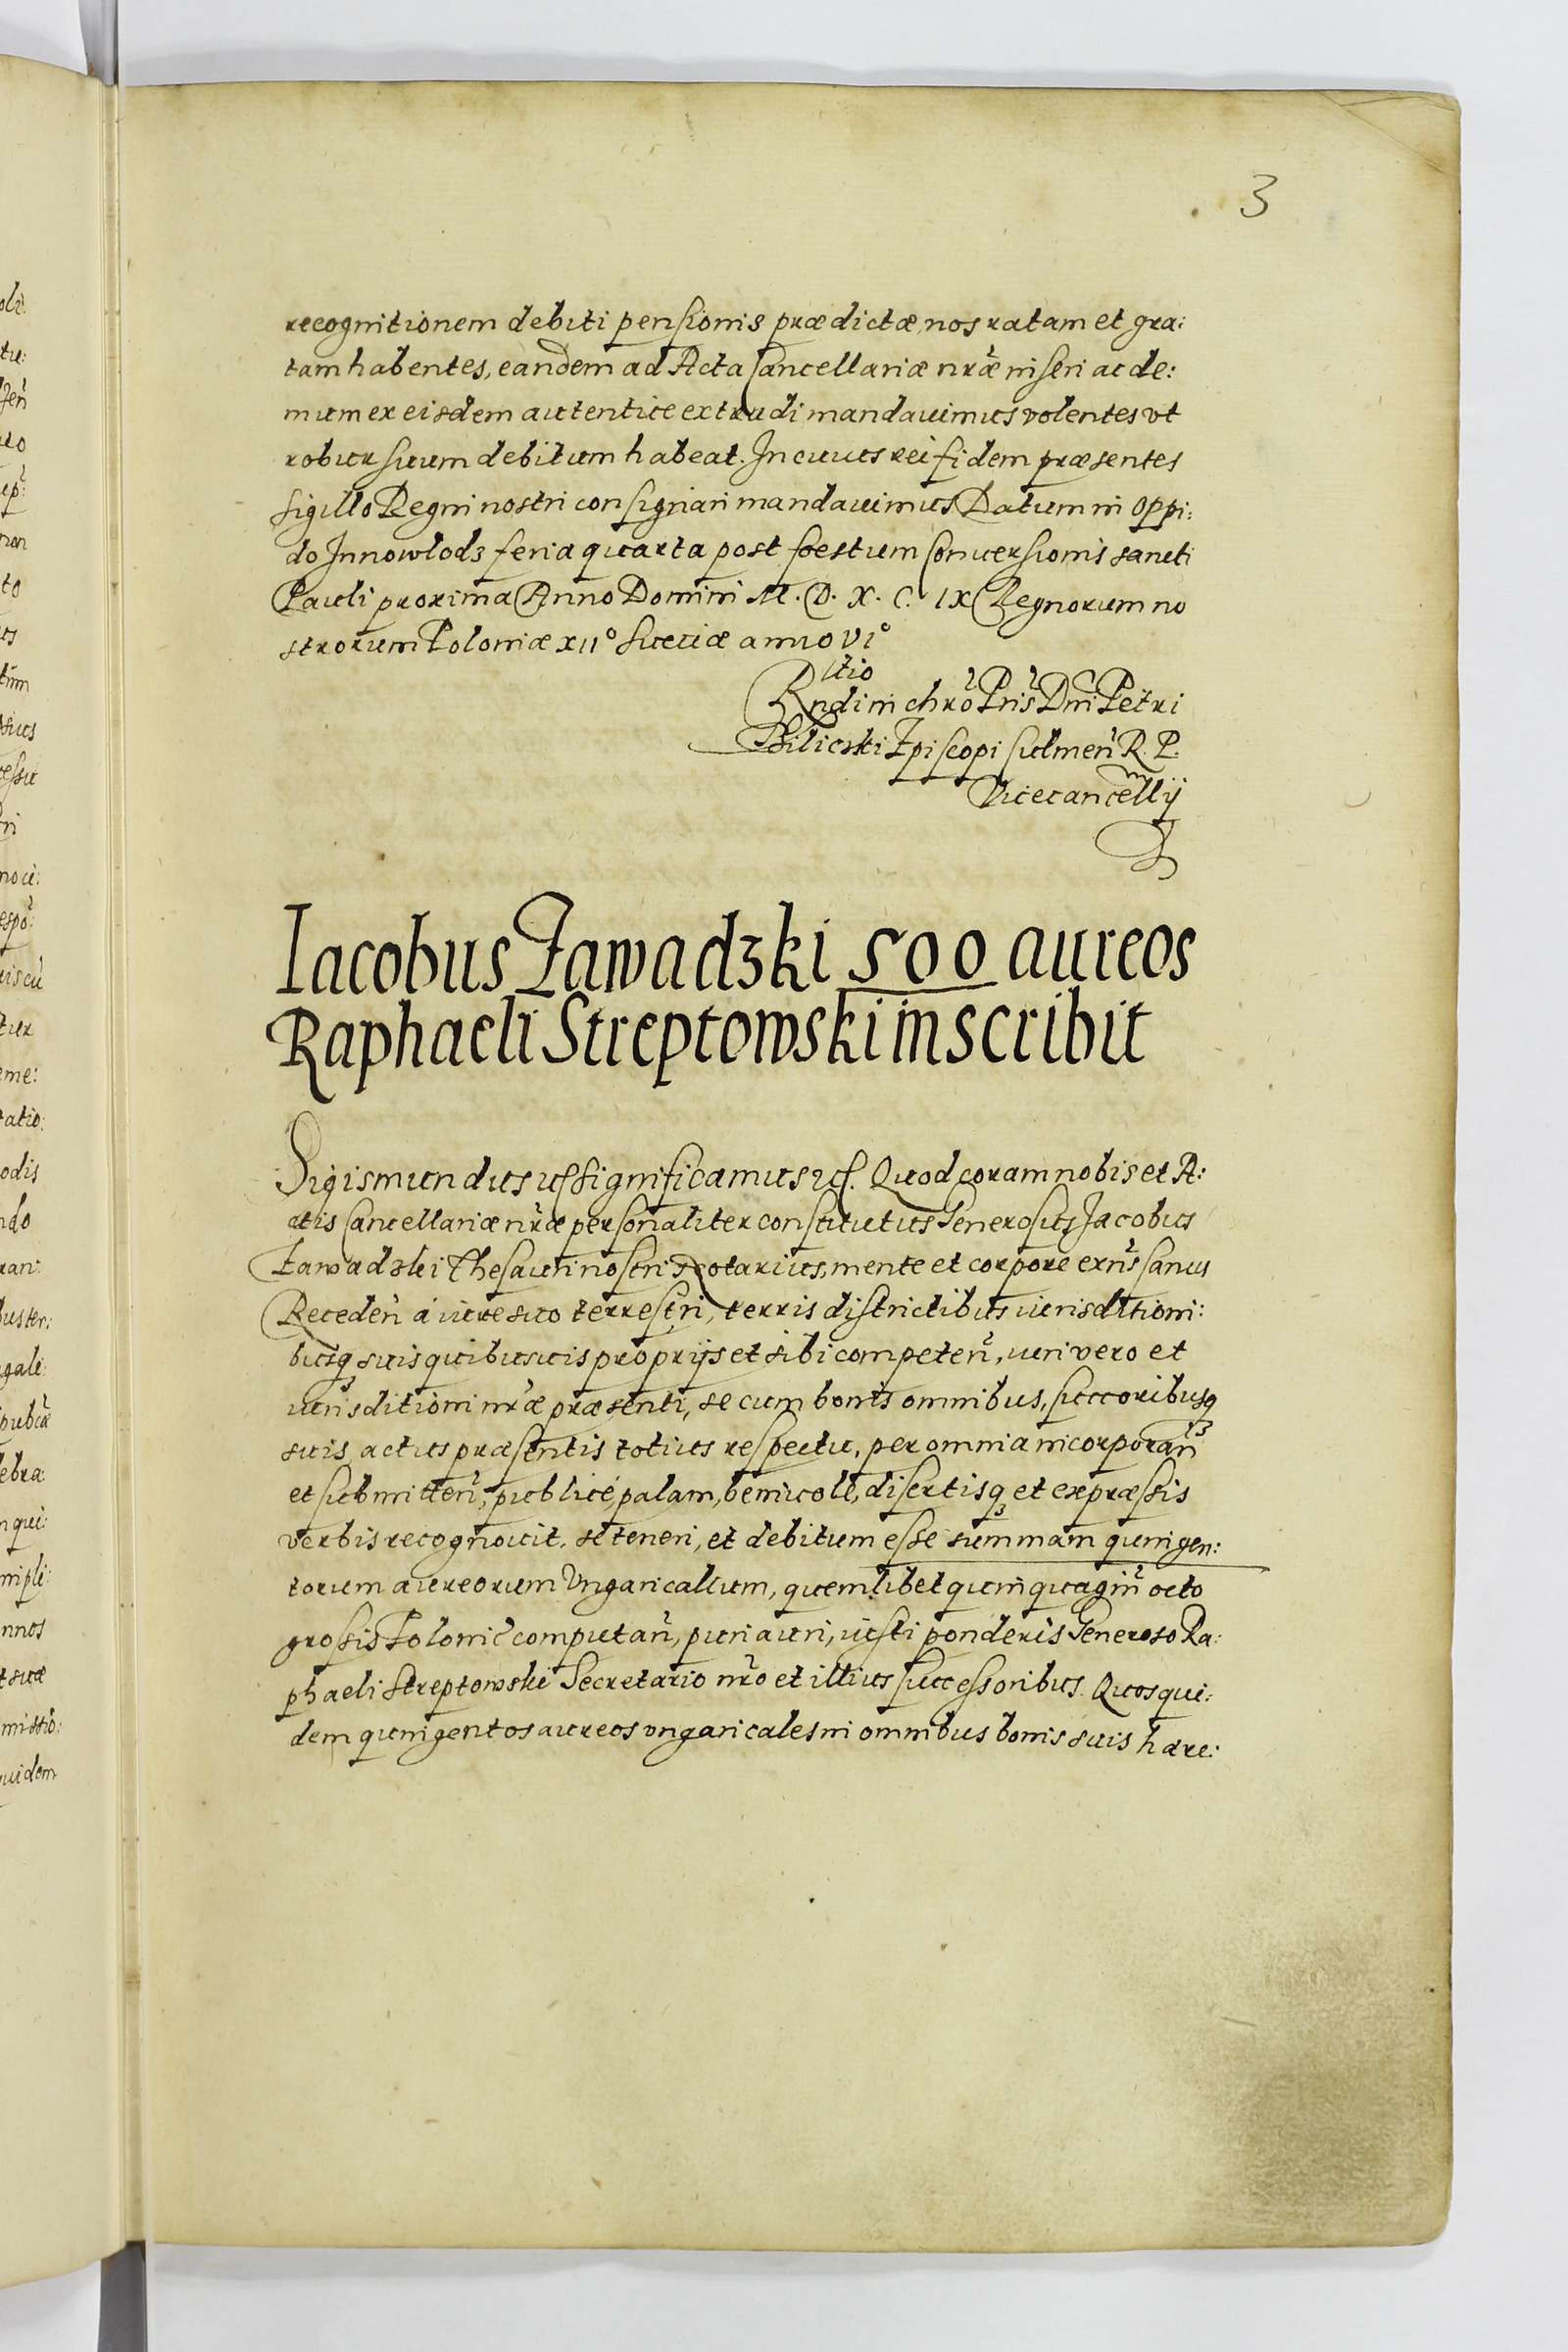 3
recognitionem debiti pensionis prædictæ nos ratam et gra:
tam habentes, eandem ad Acta Cancellariæ nr̃æ inseri ac de:
mum ex eisdem autentice extradi mandauimus volentes vt
robur suum debitum habeat. In cuius rei fidem præsentes
sigillo Regni nostri consignari mandauimus Datum in oppi:
do Innowlodz feria quarta post foestum Conuersionis sancti
Pauli proxima Anno Domini M. D. X. C. IX Regnorum no
strorum Poloniæ XII° Sueciæ anno VI°
Rltio
Rndi in chr̃o Pris̃ Dni Petri
Tilicski Episcopi Culmen̄ R. P.
Vicecancellij
Iacobus Zawadzki 500 aureos
Raphaeli Streptowski inscribit
Sigismundus uſ significamus ꝛcſ. Quod coram nobis et A:
ctis Cancellariæ nr̃æ personaliter constitutus Generosus Jacobus
Zawadzki Thesauri nostri Notarius, mente et corpore exn̄s sanus
Receden̄ à iure suo terrestri, terris districtibus iurisditioni:
busq suis quibusuis proprijs et sibi competen̄, iuri vero et
iurisditioni nr̃æ præsenti, se cum bonis omnibus, succoribusq
suis, actus præsentis totius respectu, per omnia incorporan̄
et submitten̄, publicè, palam, beniuole, disertisq et expræssis
verbis recognouit, se teneri, et debitum esse summam quingen:
torum aureorum Vngaricalium, quemlibet quinquagin̄ octo
grossis Polonic̄ computan̄, puri auri, iusti ponderis Generoso Ra:
phaeli Streptowski Secretario nr̃o et illius successoribus. Quos qui:
dem quingentos aureos vngaricales in omnibus bonis suis hære: